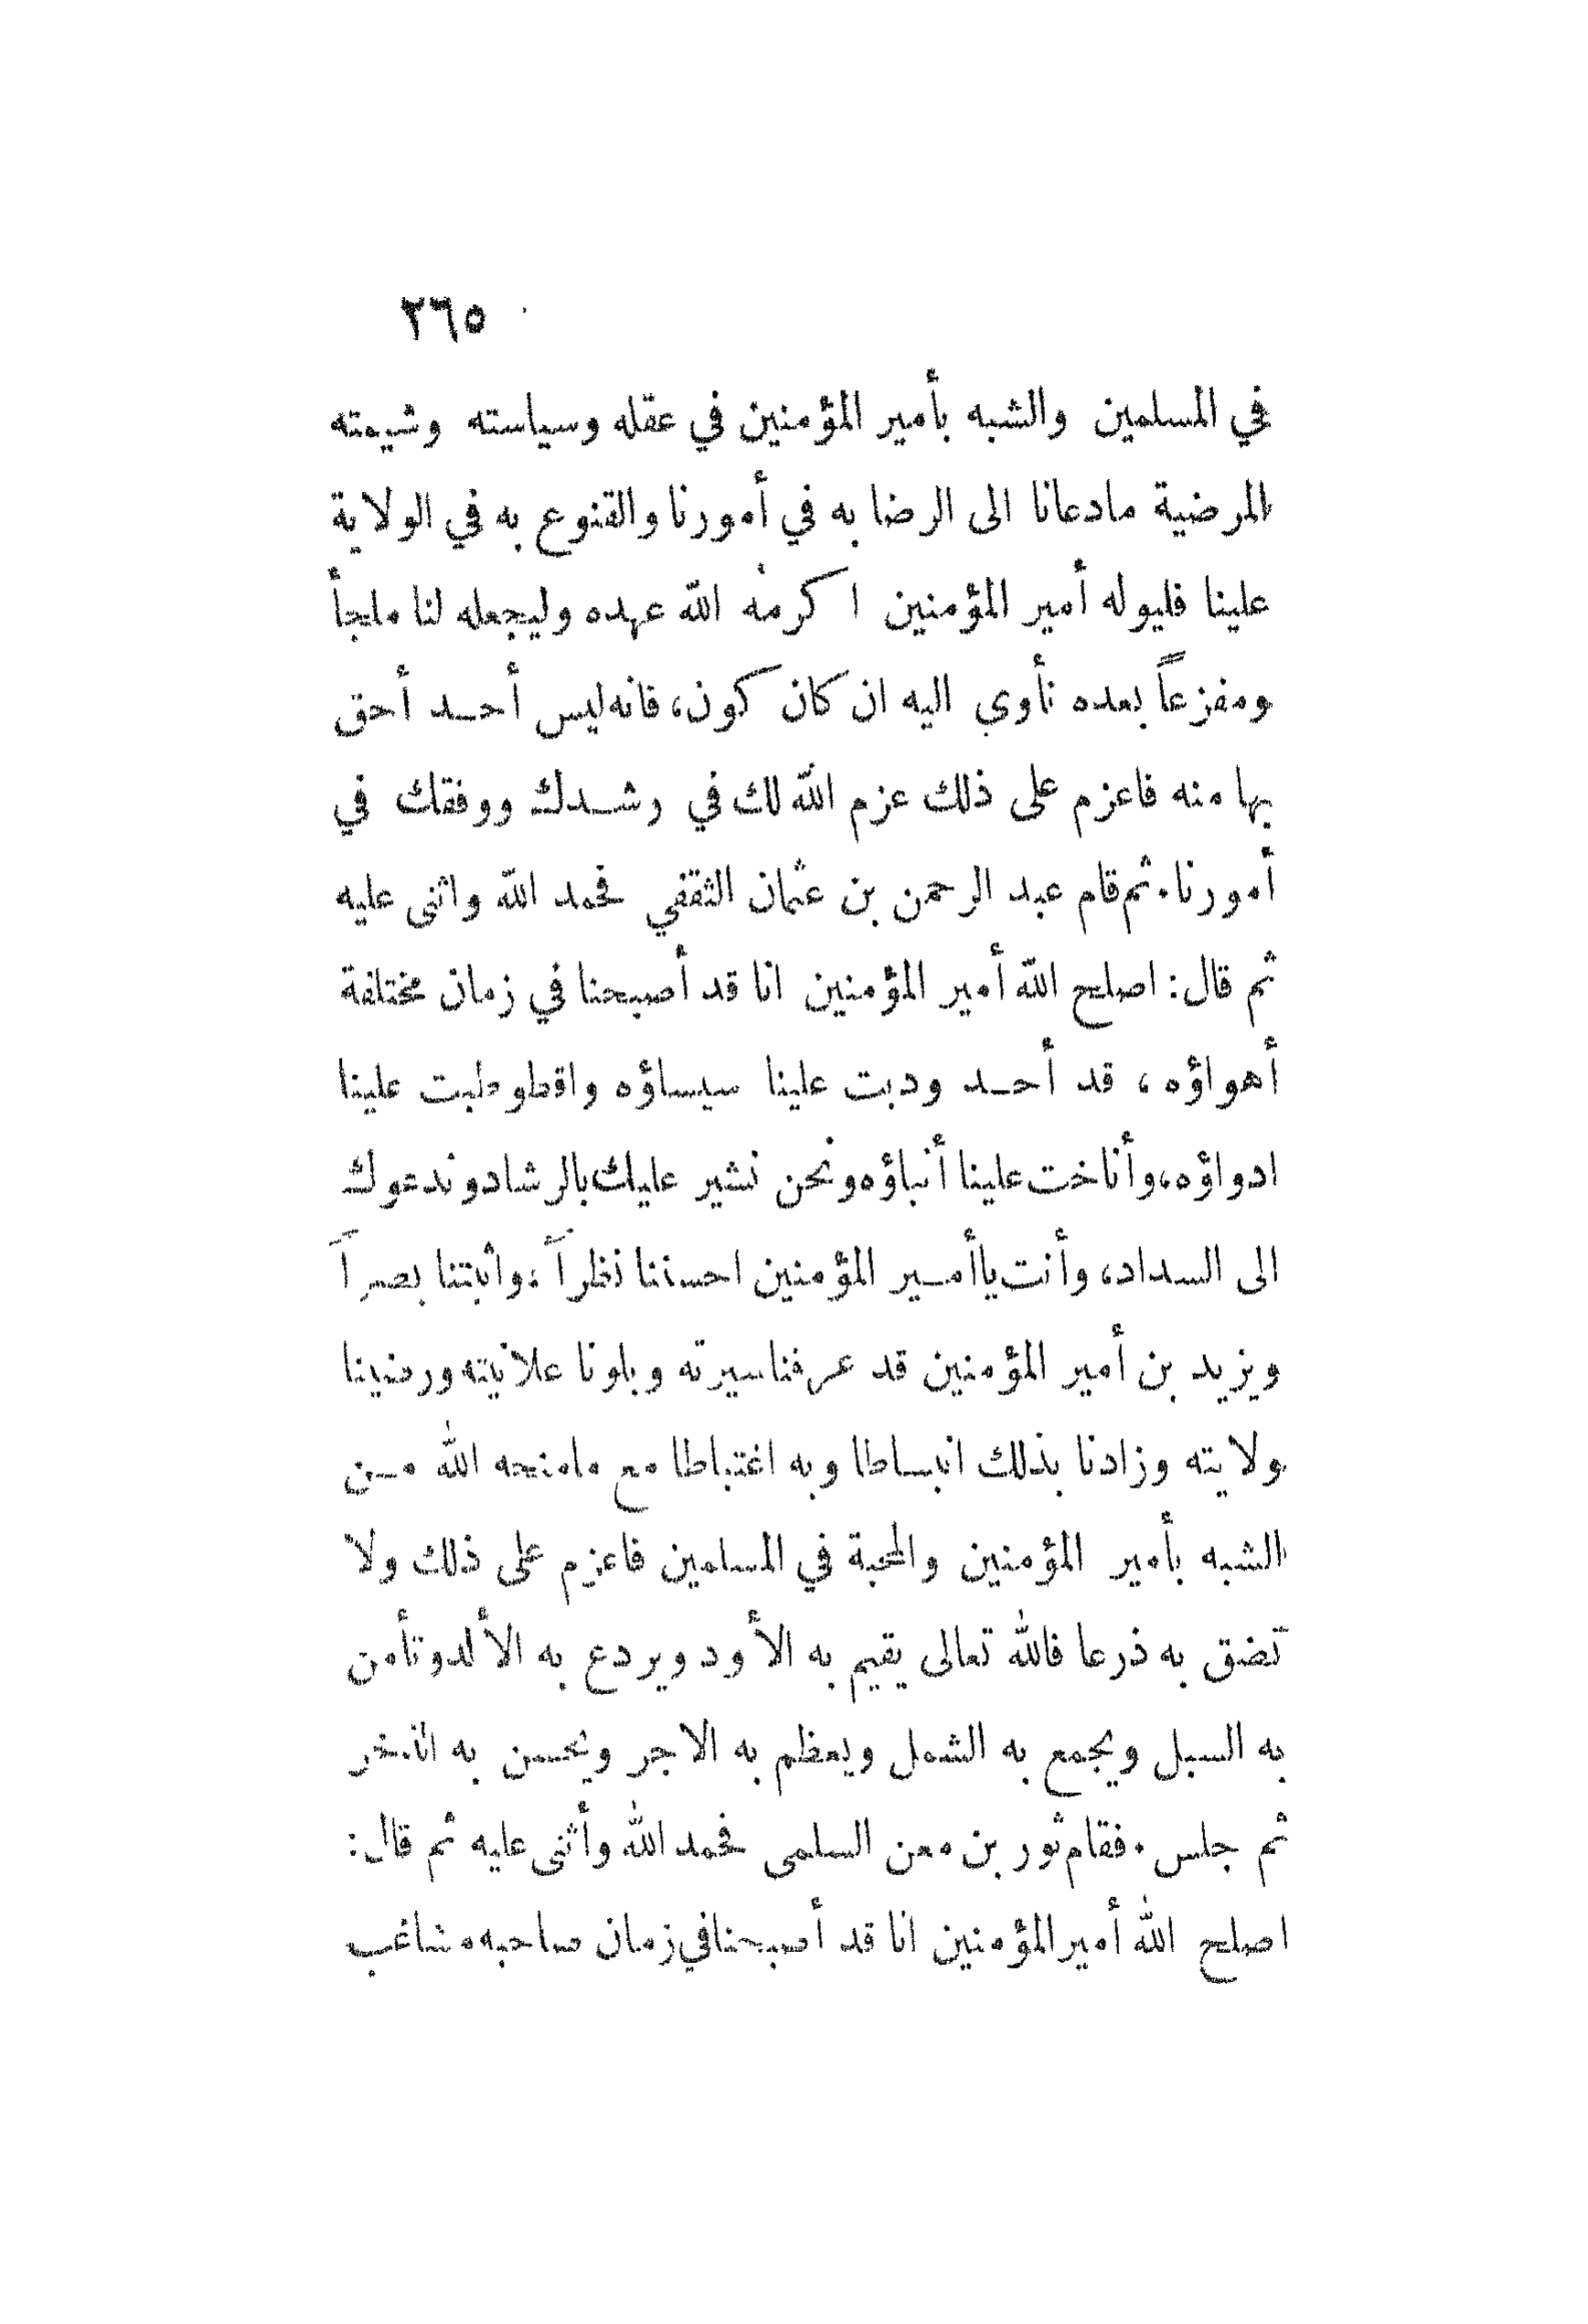 ٢٦٥
في المسلمين والشبه بأمير المؤمنين في عقله وسياسته وشيمته
المرضية مادعانا الى الرضا به في أمورنا والقنوع به في الولاية
علينا فليوله أمير المؤمنين اكرمه الله عهده وليجعله لنا ملجأ
ومفزعاً بعده نأوي اليه ان كان كون، فانه ليس أحد أحق
بها منه فاعزم على ذلك عزم الله لك في رشدك ووفقك في
أمورنا. ثم قام عبد الرحمن بن عثمان الثقفي فحمد الله واثنى عليه
ثم قال: اصلح الله أمير المؤمنين انا قد أصبحنا في زمان مختلفة
أهواؤه، قد أحد ودبت علينا سيساؤه واقطوطبت علينا
ادواؤه، وأناخت علينا أنباؤه ونحن نشير عليك بالرشاد وندعوك
الى السداد، وأنت ياأمير المؤمنين احسننا نظراً، واثبتنا بصراً
ويزيد بن أمير المؤمنين قد عرفنا سيرته وبلونا علانيته ورضينا
ولايته وزادنا بذلك انبساطا وبه اغتباطا مع مامنحه الله من
الشبه بأمير المؤمنين والمحبة في المسلمين فاعزم على ذلك ولا
تضق به ذرعا فالله تعالى يقيم به الأود ويردع به الألد وتأمن
به السبل ويجمع به الشمل ويعظم به الاجر ويحسن به الذخر
ثم جلس. فقام ثور بن معن السلمى فحمد الله وأثنى عليه ثم قال:
اصلح الله أمير المؤمنين انا قد أصبحنا في زمان صاحبه مشاغب